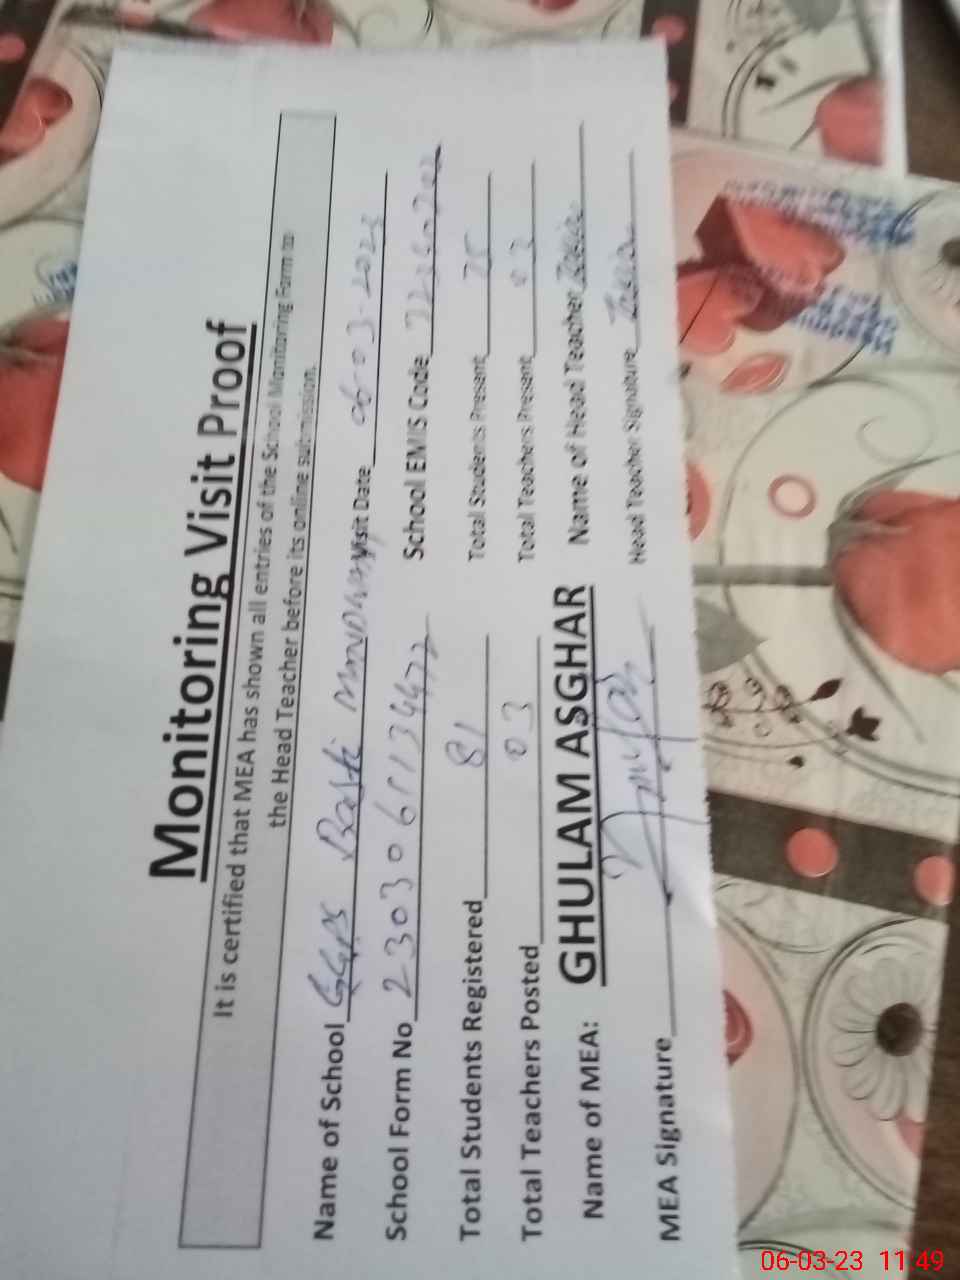 Monitoring Visit Proof
It is certified that MEA has shown all entries of the School Monitoring Form to
the Head Teacher before its online submission.
Name of School GGPS Basti Visit Date 06-03-2023
School Form No School EMIS Code
Total Students Registered 81 Total Students Present 75
Total Teachers Posted 03 Total Teachers Present 03
Name of MEA: GHULAM ASGHAR Name of Head Teacher
MEA Signature Head Teacher Signature
06-03-23 11:49